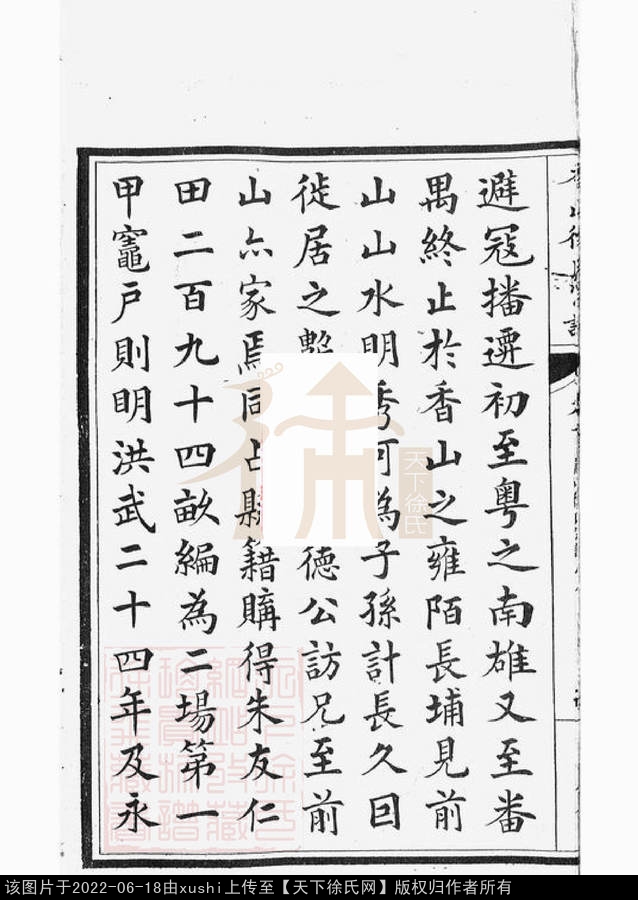 避冦播遷初至粵之南雄又至番
禺終止於香山之雍陌長埔見前
山山水明秀可為子孫計長久囙
徙居之德公訪兄至前
山亦家焉同占縣籍購得朱友仁
田二百九十四畝編為二場第一
甲竈戶則明洪武二十四年及永
天下徐氏
该图片于2022-06-18由xushi上传至【天下徐氏网】版权归作者所有